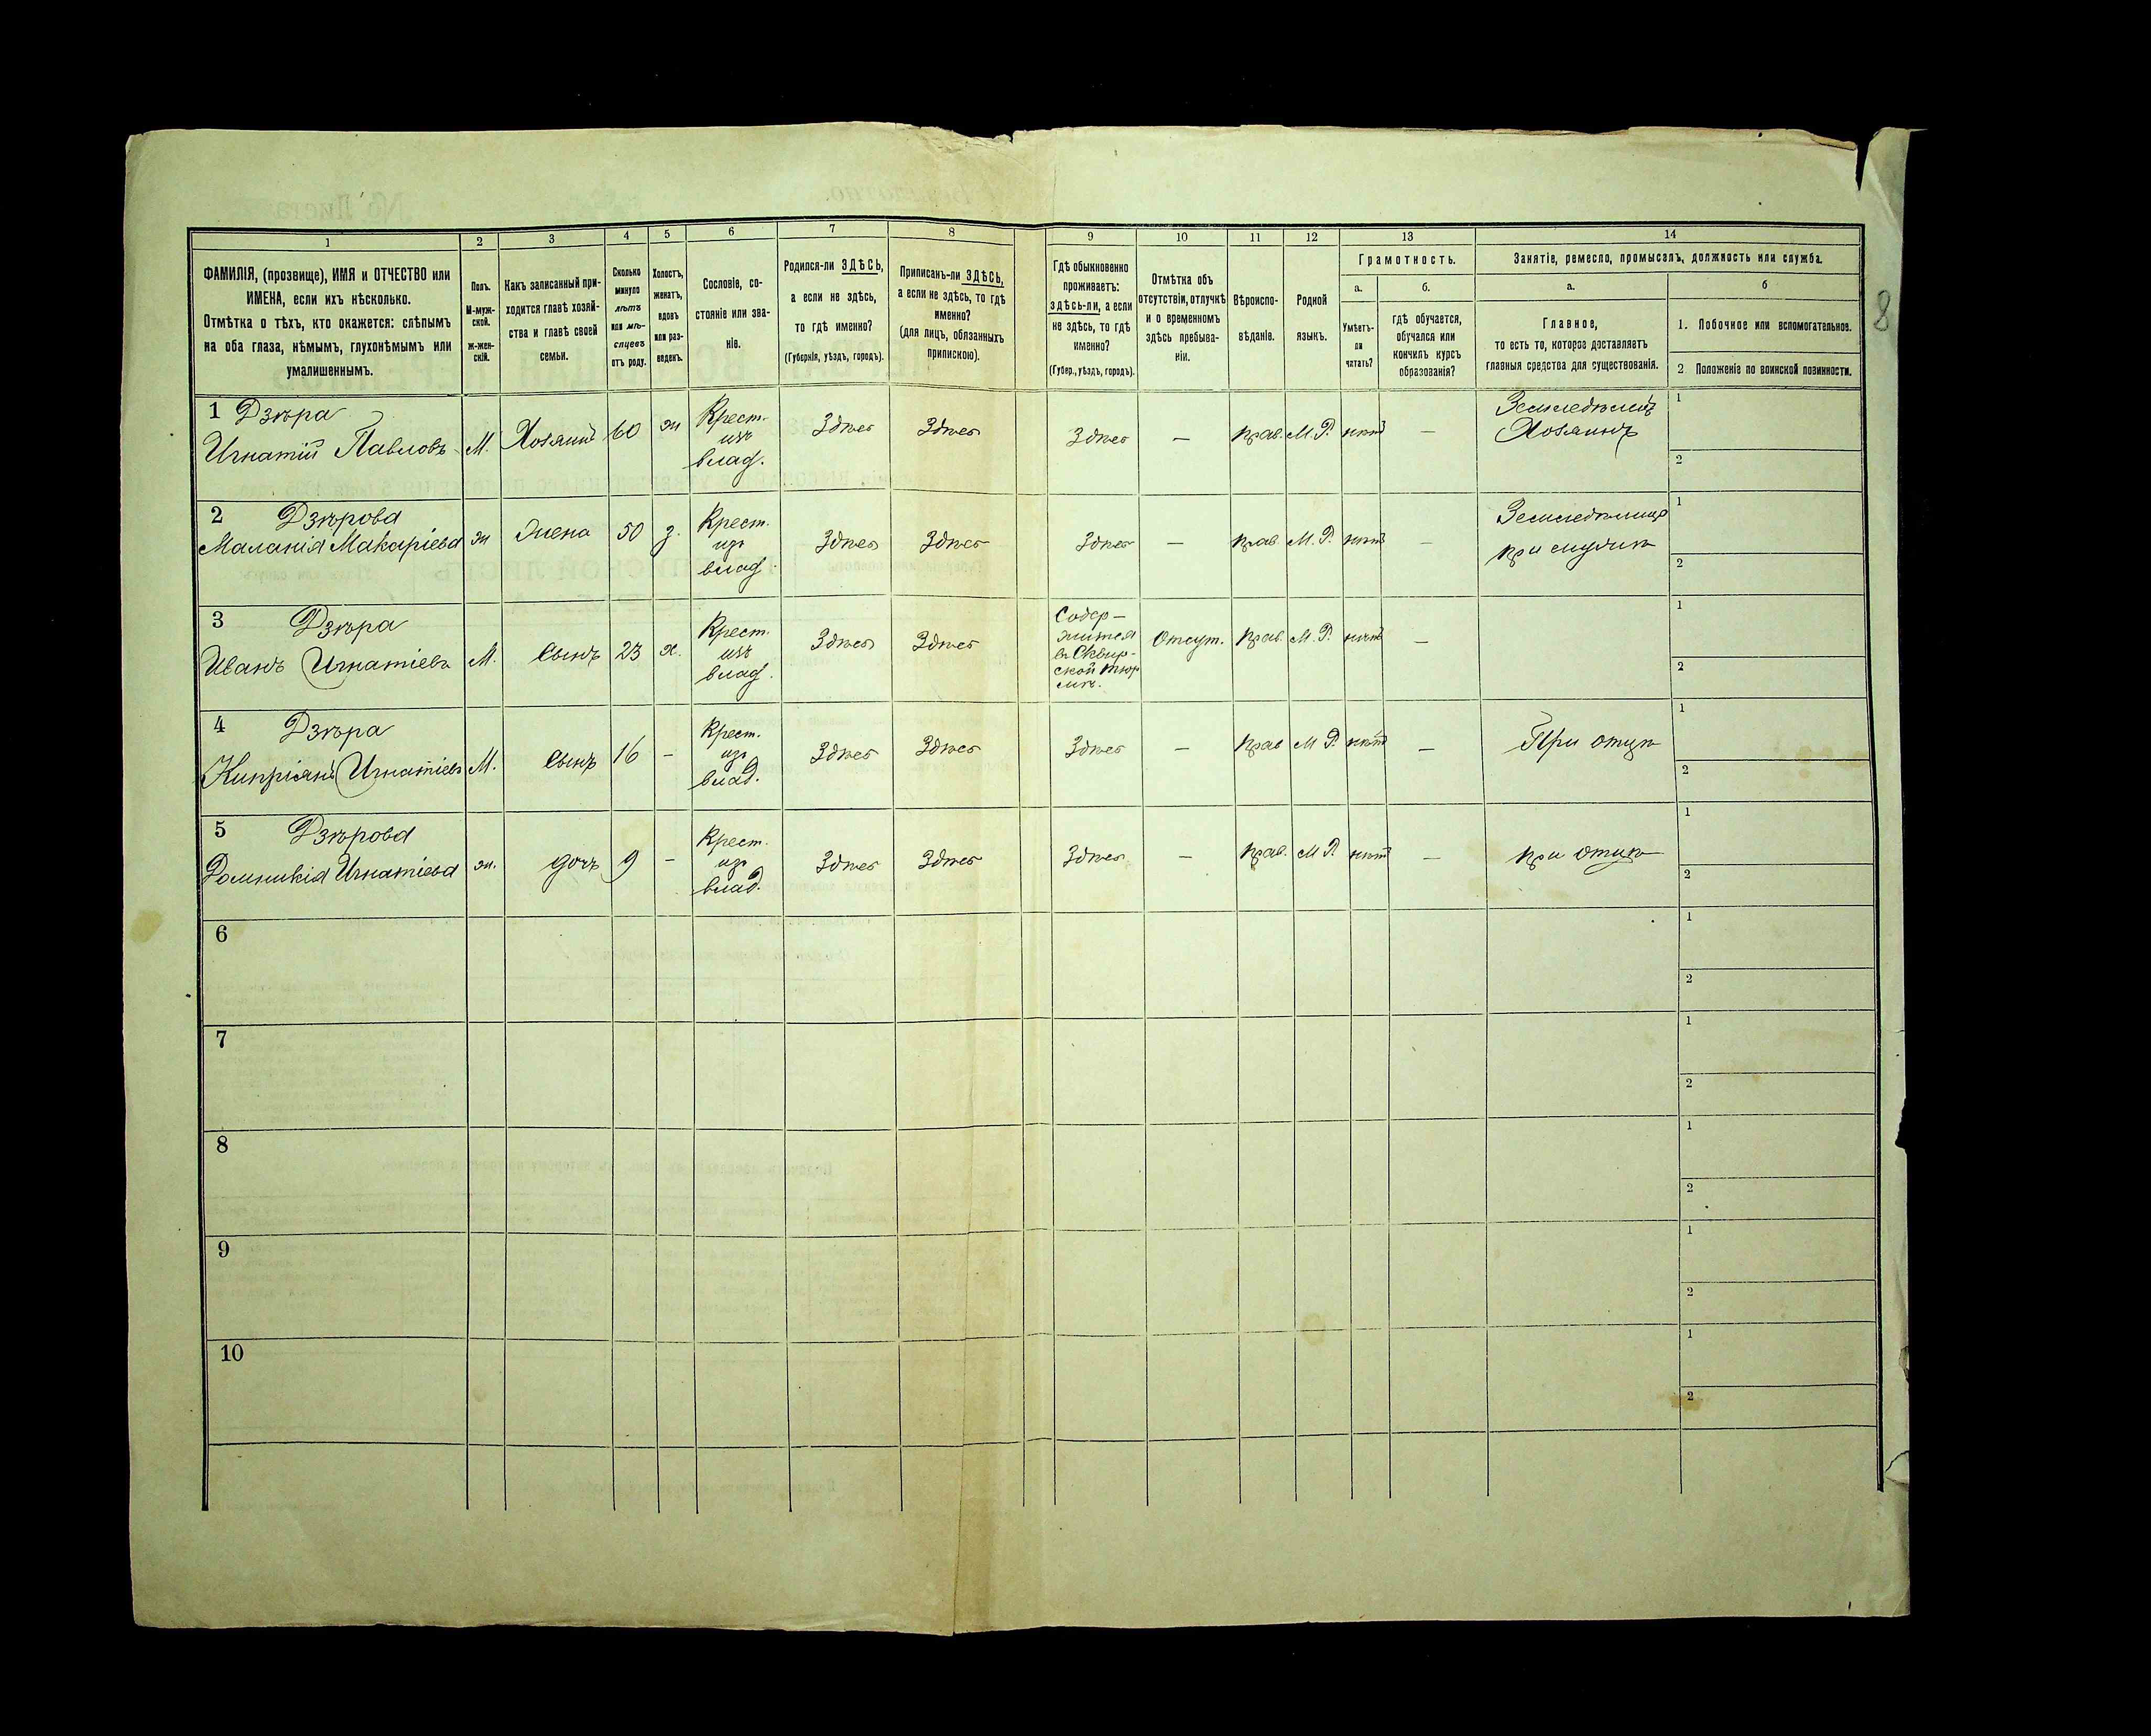 8
1
2
3
4
5
6
7
8
9
10
11
12
13
14
ФАМИЛІЯ, (прозвище), ИМЯ и ОТЧЕСТВО или
ИМЕНА, если ихъ нѣсколько.
Отмѣтка о тѣхъ, кто окажется: слѣпымъ
на оба глаза, нѣмымъ, глухонѣмымъ или
умалишеннымъ.
Полъ.
М-муж-
ской.
ж-жен-
скій.
Какъ записанный при-
ходится главѣ хозяй-
ства и главѣ своей
семьи.
Сколько
минуло
лѣтъ
или мѣ-
сяцевъ
отъ роду.
Холостъ,
женатъ,
вдовъ
или раз-
веденъ.
Сословіе, со-
стояніе или зва-
ніе.
Родился-ли ЗДѢСЬ,
а если не здѣсь,
то гдѣ именно?
(Губернія, уѣздъ, городъ).
Приписанъ-ли ЗДѢСЬ,
а если не здѣсь, то гдѣ
именно?
(для лицъ, обязанныхъ
припискою).
Гдѣ обыкновенно
проживаетъ:
здѣсь-ли, а если
не здѣсь, то гдѣ
именно?
(Губер., уѣздъ, городъ).
Отмѣтка объ
отсутствіи, отлучкѣ
и о временномъ
здѣсь пребыва-
ніи.
Вѣроиспо-
вѣданіе.
Родной
языкъ.
Грамотность.
а.
Умѣетъ-
ли
читать?
б.
гдѣ обучается,
обучался или
кончилъ курсъ
образованія?
Занятіе, ремесло, промыселъ, должность или служба.
а.
Главное,
то есть то, которое доставляетъ
главныя средства для существованія.
б
1. Побочное или вспомогательное.
2 Положеніе по воинской повинности.
1 Дзѣра
Игнатій Павловъ
М.
Хозяинъ
60
ж
Крест.
изъ
влад.
Здѣсь
Здѣсь
Здѣсь
—
прав.
М.Р.
нѣтъ
—
Земледѣлецъ
Хозяинъ
1
2
2 Дзѣрова
Маланія Макаріева
ж
Жена
50
з.
Крест.
изъ
влад.
Здѣсь
Здѣсь
Здѣсь
—
прав
М. Р.
нѣтъ
—
при мужѣ
1
2
3 Дзѣра
Иванъ Игнатіевъ
М.
Сынъ
23
х.
Крест.
изъ
влад.
Здѣсь
Здѣсь
Содер-
жится
въ Сквир-
ской тюр
мѣ.
Отсут.
прав.
М. Р.
нѣтъ
—
1
2
4 Дзѣра
Кипріянъ Игнатіевъ
М.
Сынъ
16
-
Крест.
изъ
влад.
Здѣсь
Здѣсь
Здѣсь
—
прав
М Р.
нѣтъ
—
При отцѣ
1
2
5 Дзѣрова
Домникія Игнатіева
ж.
дочь
9
-
Крест.
изъ
влад.
Здѣсь
Здѣсь
Здѣсь
—
прав.
М Р.
нѣтъ
—
при отцѣ
1
2
6
1
2
7
1
2
8
1
2
9
1
2
10
1
2